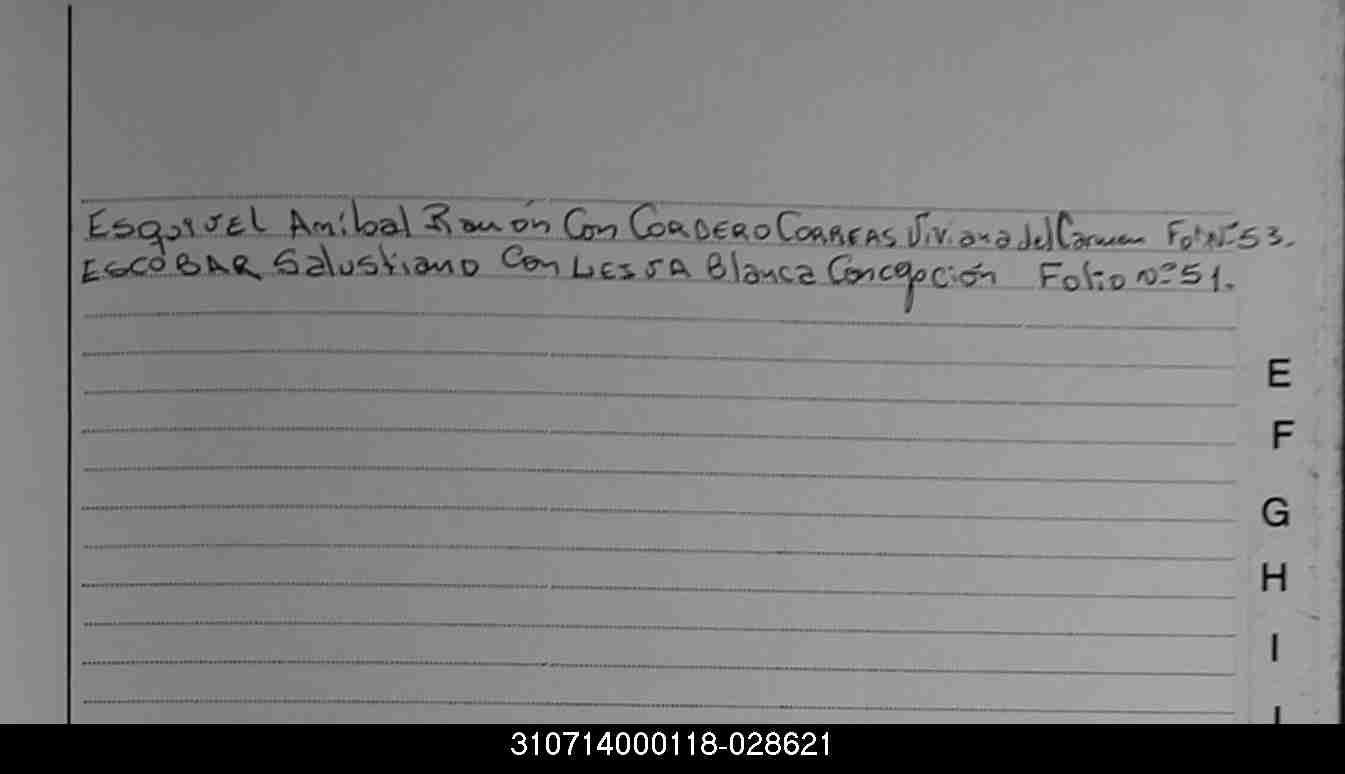 Esquivel Aníbal Ramón Con CORDERO CORREAS Viviana del Carmen Fol Nº 53.
ESCOBAR Salustiano Con Blanca Concepción Folio nº 51.
E
F
G
H
I
310714000118-028621